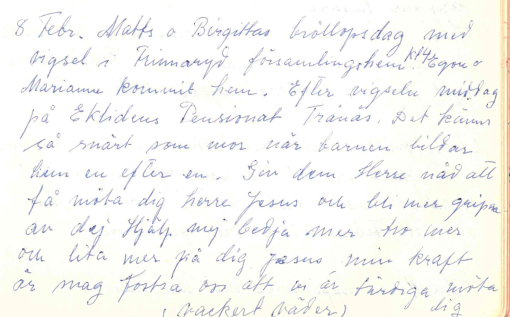 8 Febr. Matts o Birgittas bröllopsdag med
vigsel i Frinnaryd församlingshem kl 14 Egon o
Marianne kommit hem. Efter vigseln middag
på Ekliden Pensionat Tranås. Det känns
så snart som mor när barnen bildar
hem en efter en. Giv dem Herre nåd att
få möta dig herre Jesus och bli mer gripna
av dej Hjälp mej bedja mer tro mer
och lita mer på dig Jesus min kraft
är svag Fostra oss att vi är färdiga möta
(vackert väder) dig